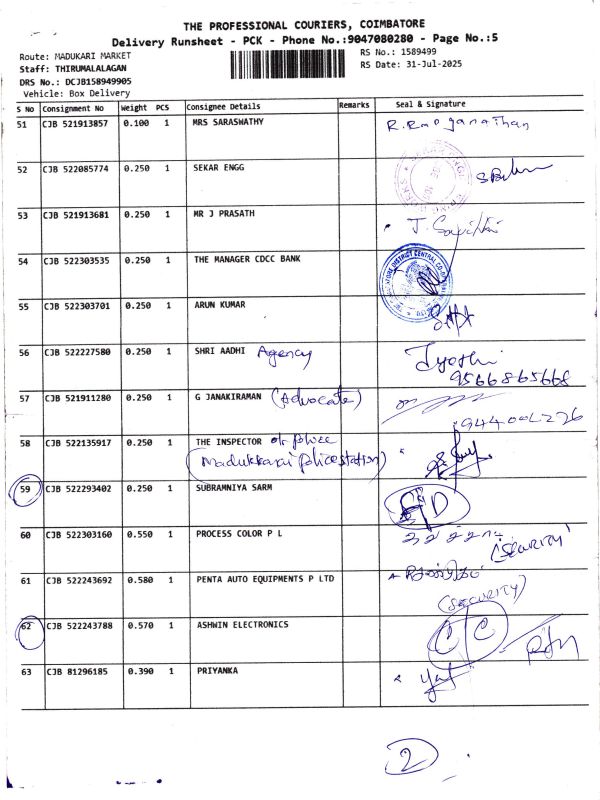 THE PROFESSIONAL COURIERS, COIMBATORE
Delivery Runsheet - PCK - Phone No.:9047080280 - Page No.:5
Route: MADUKARI MARKET
RS No.: 1589499
Staff: THIRUMALALAGAN
RS Date: 31-Jul-2025
DRS No.: DCJB158949905
Vehicle: Box Delivery
S No Consignment No Weight PCS Consignee Details Remarks Seal & Signature
51 CJB 521913857 0.100 1 MRS SARASWATHY
52 CJB 522085774 0.250 1 SEKAR ENGG
53 CJB 521913681 0.250 1 MR J PRASATH
54 CJB 522303535 0.250 1 THE MANAGER CDCC BANK
55 CJB 522303701 0.250 1 ARUN KUMAR
56 CJB 522227580 0.250 1 SHRI AADHI Agency Jyoshi
9566865668
57 CJB 521911280 0.250 1 G JANAKIRAMAN (Advocate)
58 CJB 522135917 0.250 1 THE INSPECTOR of police
(Madukkarai police station)
59 CJB 522293402 0.250 1 SUBRAMNIYA SARM
60 CJB 522303160 0.550 1 PROCESS COLOR P L
(SECURITY)
61 CJB 522243692 0.580 1 PENTA AUTO EQUIPMENTS P LTD
(SECURITY)
62 CJB 522243788 0.570 1 ASHWIN ELECTRONICS C C
63 CJB 81296185 0.390 1 PRIYANKA
2